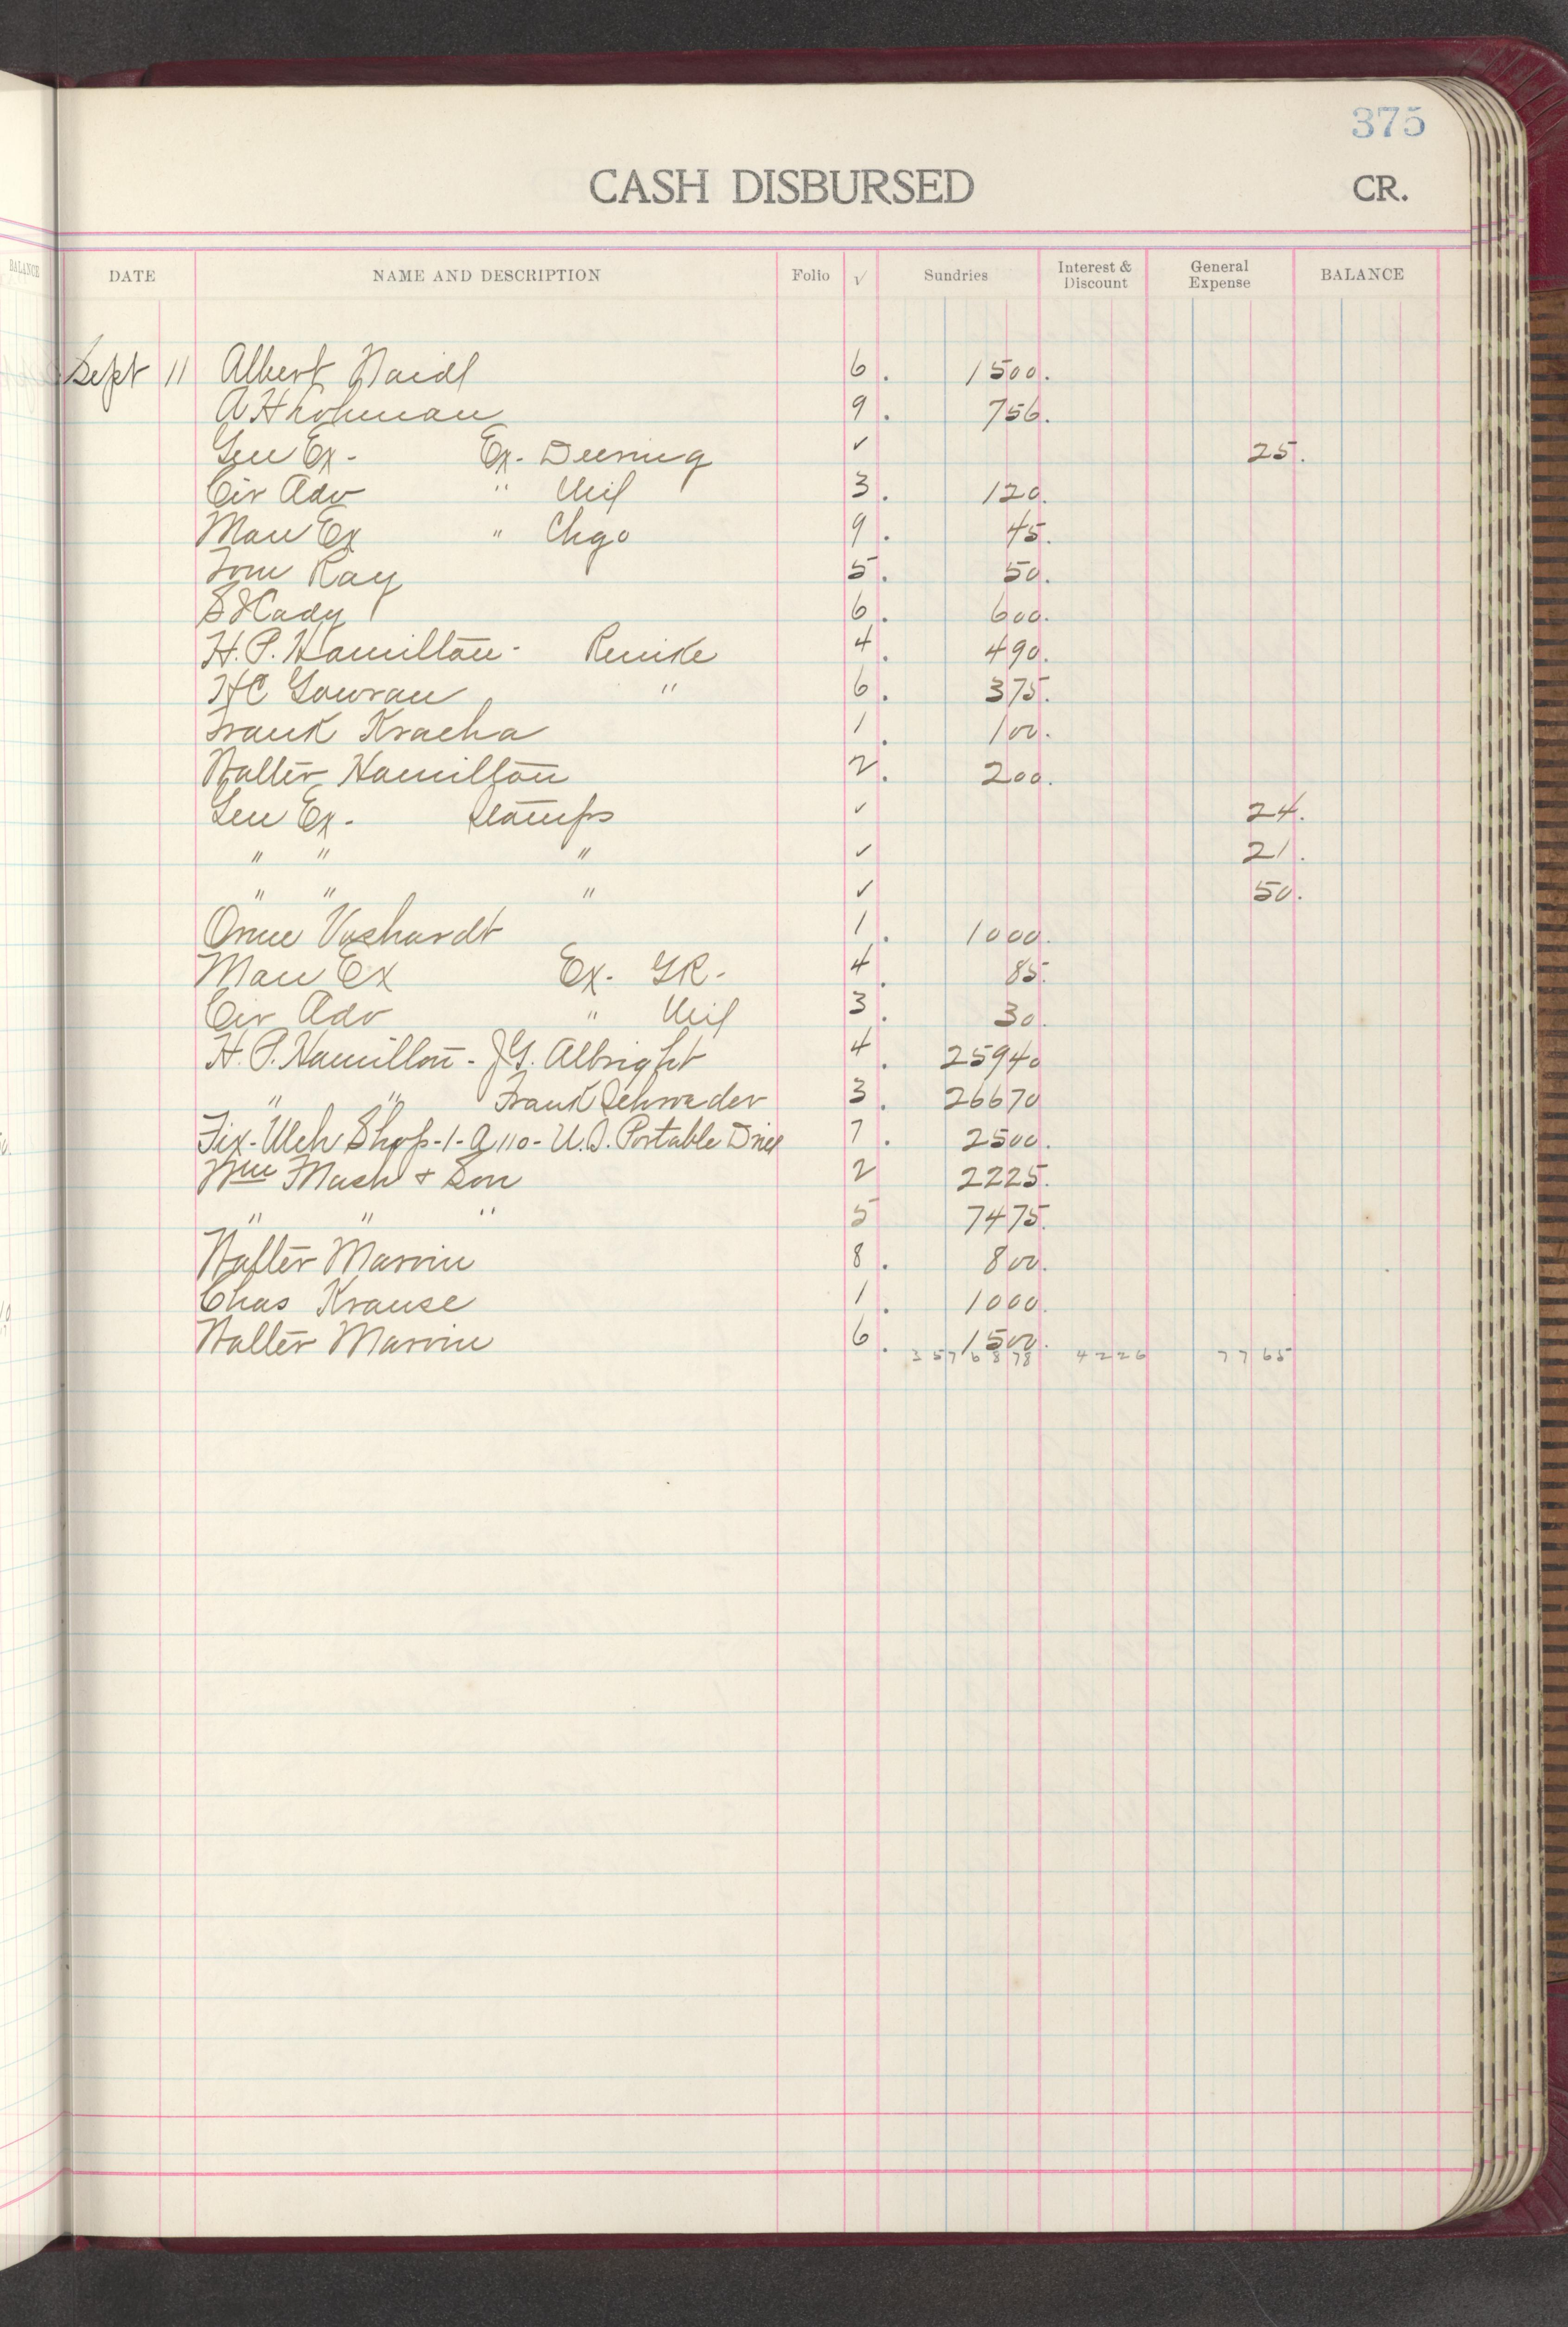 375
CASH DISBURSED CR.
BALANCE DATE NAME AND DESCRIPTION Folio √ Sundries Interest & Discount General Expense BALANCE
Sept 11 Albert Naidl 6 . 1500.
A H Lohman 9 . 756.
Gen Ex - Ex - Deering ✓ 25.
Cir Adv " Mil 3 . 120.
Man Ex " Chgo 9 . 45.
Tom Ray 5 . 50.
Cady 6 . 600.
H. P. Hamilton - Reinke 4 . 490.
HC Gowran " 6 . 375.
Frank Kracha 1 . 100.
Walter Hamilton 2 . 200.
Gen Ex - Stamps ✓ 24.
" " " ✓ 21.
" " " ✓ 50.
Voshardt 1 . 1000.
Man Ex Ex - GR - 4 . 85.
Cir Adv " Mil 3 . 30.
H. P. Hamilton - J.G. Albright 4 . 25940
" " Frank Schrader 3 . 26670
Fix - Mch Shop - 1 - A 110 - U.S. Portable Drill 7 . 2500.
Wm Mash & Son 2 2225.
" " " 5 7475.
Walter Marvin 8 . 800.
Chas Krause 1 . 1000.
Walter Marvin 6 . 1500.
3576878 4226 7765